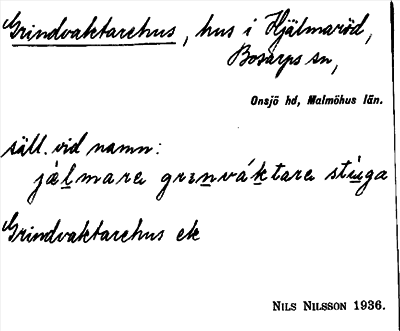 Grindvaktarehus, hus i Hjälmaröd,
Bosarps sn,
Onsjö hd, Malmöhus län.
säll. vid namn:
jælmara grɪnvák̲tara stu̇ga
Grindvaktarehus ek
NILS NILSSON 1936.